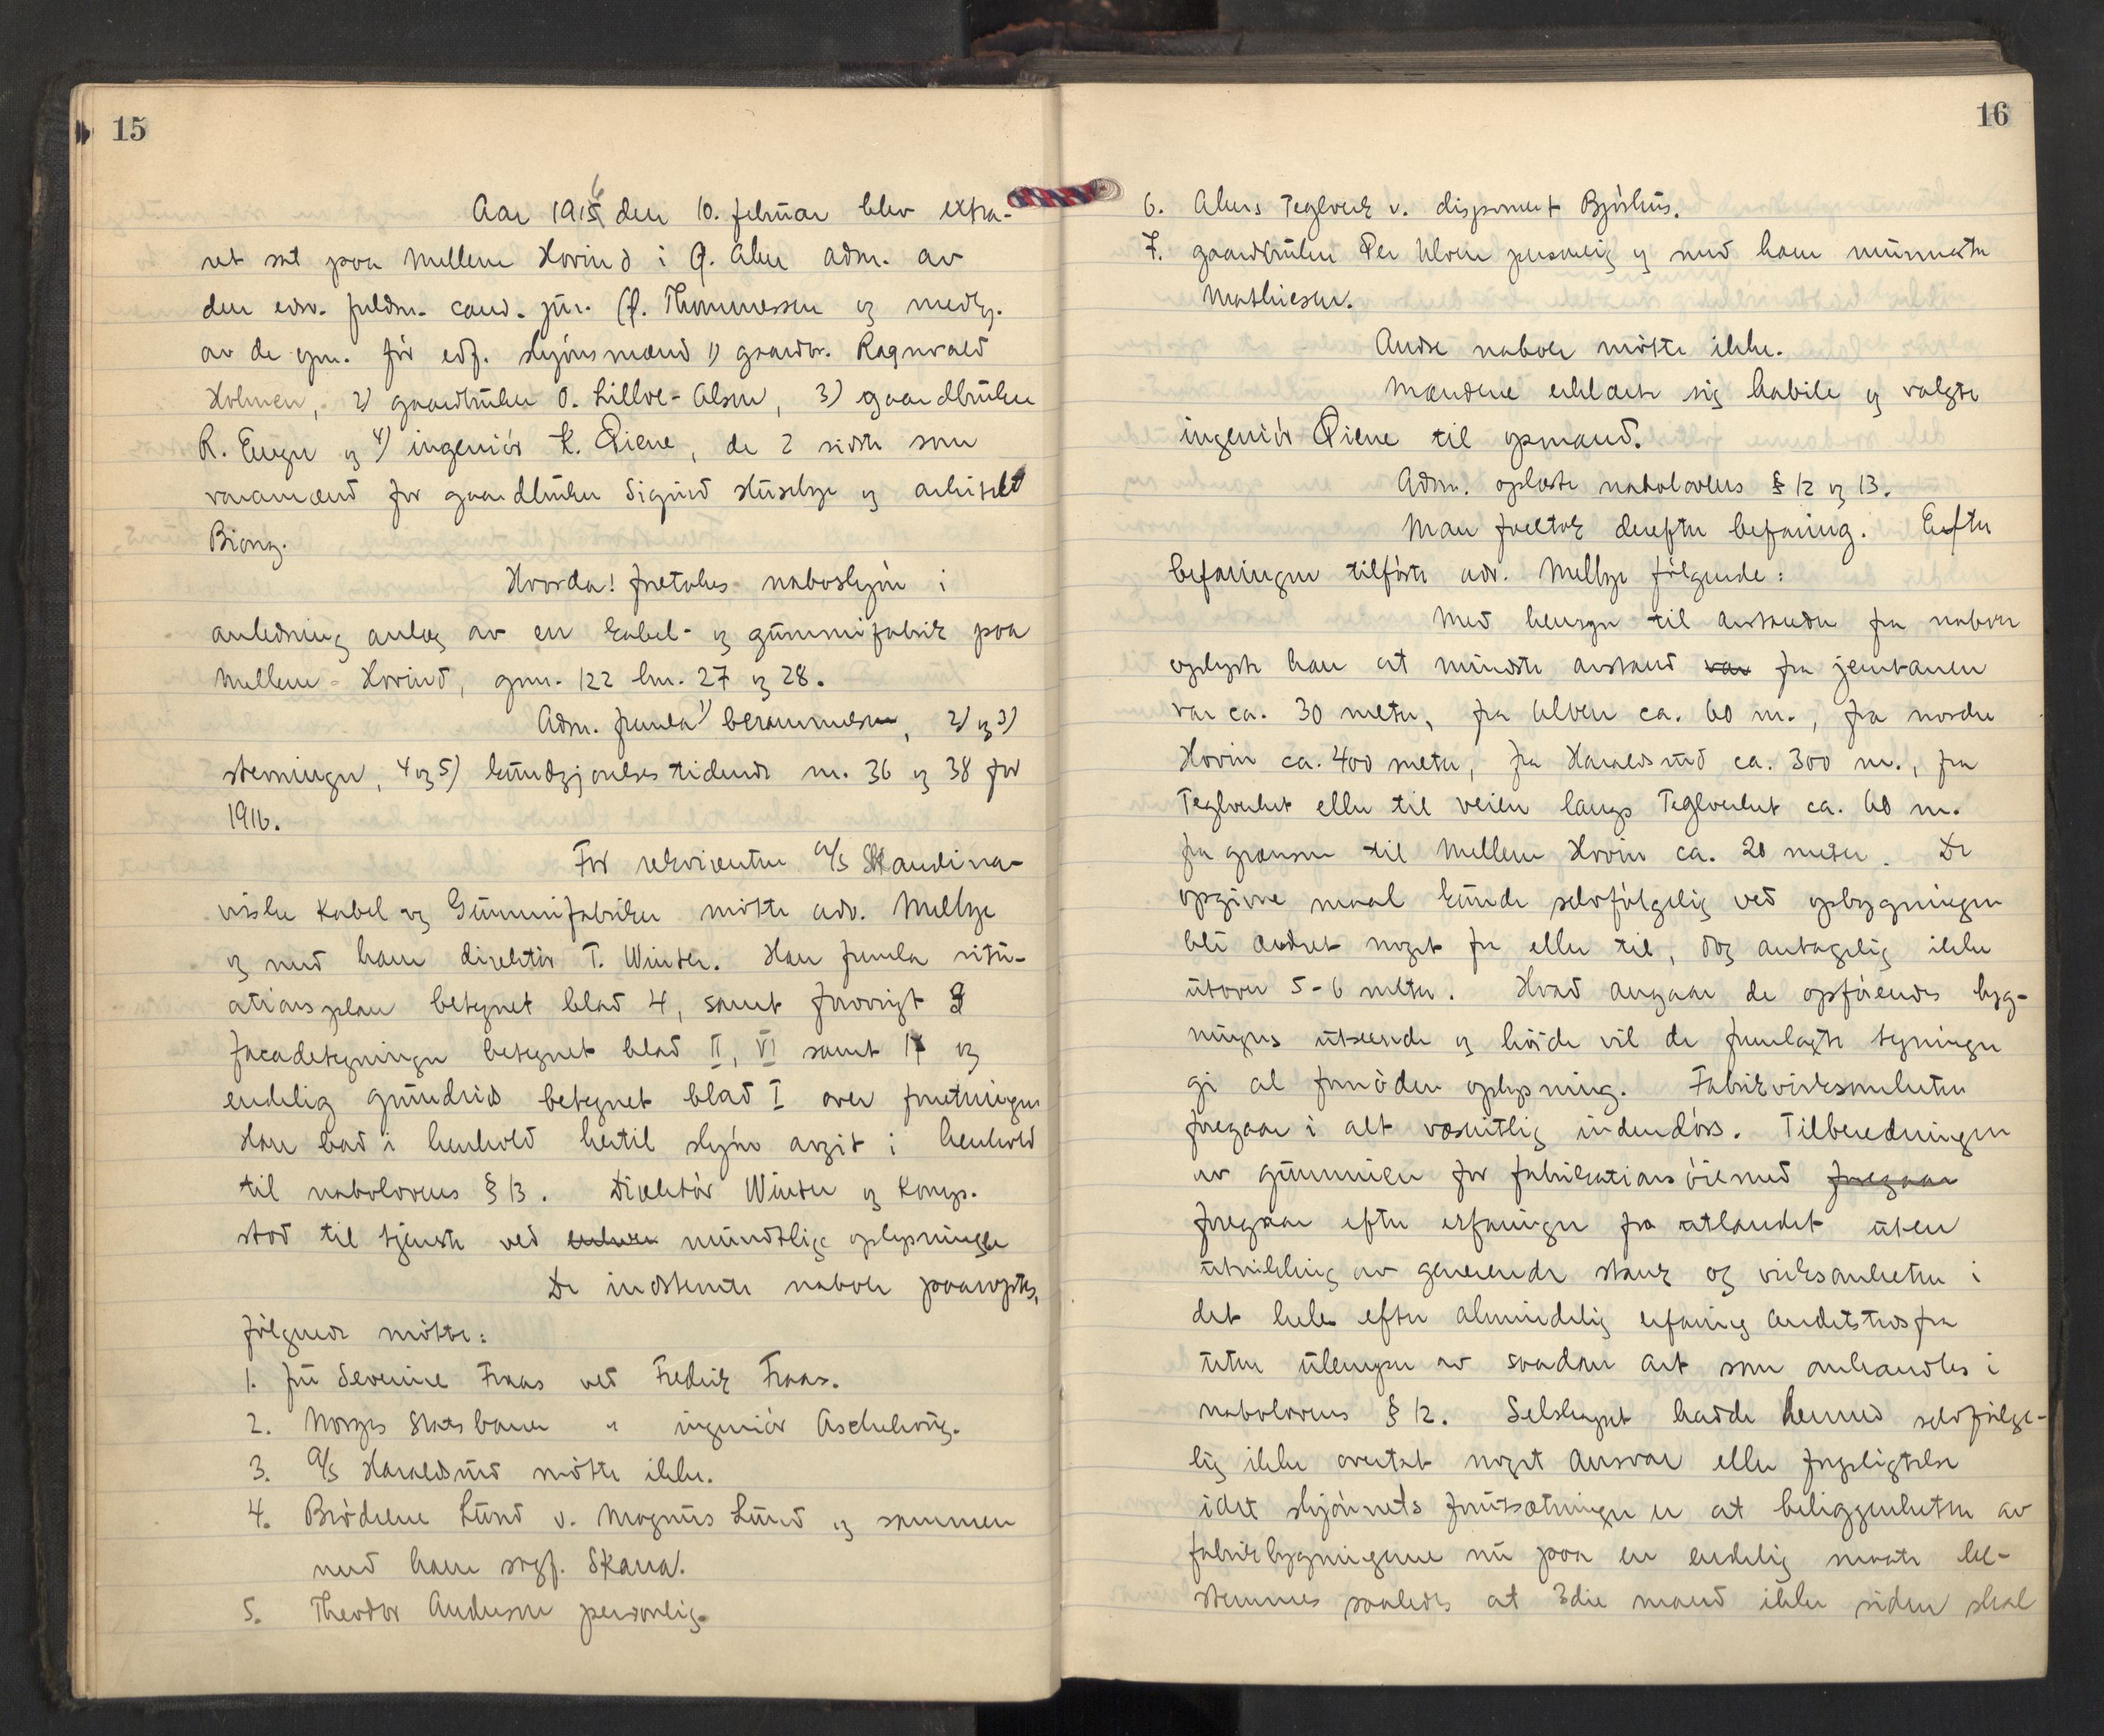 15
Aar 1916 den 10. februar blev extra-
ret sat paa Mellem Hovind i Ø. Aker adm. av
den edsv. fuldm. cand. jur. Thommessen og medbj.
av de opn. før edf. skjønsmænd 1) gaardbr. Ragnvald
Holmen, 2) gaardbruker O. Lilloe-Olsen, 3) gaardbruker
R. Enger og 4) ingeniør K. Piene, de 2 sidste som
varamænd for gaardbruker Sigurd Huseby og arkitekt
Biong.
Hvorda! foretokes naboskjøn i
anledning anlæg av en kabel- og gummifabrik paa
Mellem-Hovind, gnr. 122 bnr. 27 og 28.
Adm. fremla 1) berammelsen, 2) og 3)
stevninger, 4 og 5) kundgjørelsestidende nr. 36 og 38 for
1916.
For rekvirenten A/S Skandina-
viske Kabel og Gummifabriker møtte adv. Mellbye
og med ham direktør T. Winter. Han fremla situ-
ationsplan betegnet blad 4, samt forøvrigt 3
facadetegninger betegnet blad II, VI samt 17 og
endelig grundrids betegnet blad I over forretningen
Han bad i henhold hertil skjøn avgit i henhold
til nabolovens § 13. Direktør Winter og Komp.
stod til tjeneste ved mundtlige oplysninger
De indstevnte naboer paaroptes,
følgende møtte:
1. fru Severine Fraas ved Fredrik Fraas.
2. Norges Statsbaner " ingeniør Aschehoug.
3. A/S Haraldsrud møtte ikke.
4. Brødrene Lund v. Magnus Lund og sammen
med ham sagf. Skarra.
5. Theodor Andersen personlig.
16
6. Akers Teglverk v. disponent Bjørhus.
7. gaardbruker Per Ulven personlig og med ham murmester
Mathiesen.
Andre naboer møtte ikke.
Mændene erklærte sig habile og valgte
ingeniør Piene til opmand.
Adm. oplæste nabolovens § 12 og 13.
Man foretok derefter befaring. Efter
befaringen tilførte adv. Mellbye følgende:
Med hensyn til avstanden fra naboer
oplyste han at mindste avstand var fra jernbanen
var ca. 30 meter, fra Ulven ca. 60 m., fra nordre
Hovin ca. 400 meter, fra Haraldsrud ca. 300 m., fra
Teglverket eller til veien langs Teglverket ca. 60 m.
fra grænsen til Mellem Hovin ca. 20 meter. De
opgivne maal kunde selvfølgelig ved opbygningen
bli andret noget fra eller til, dog antagelig ikke
utover 5-6 meter. Hvad angaar de opførendes byg-
ningers utseende og høide vil de fremlagte tegninger
gi al fornøden oplysning. Fabrikvirksomheten
foregaar i alt væsentlig indendørs. Tilberedningen
av gummien for fabrikationsøiemed foregaar
foregaar efter erfaringer fra utlandet uten
utvikling av generende stank og virksomheten i
det hele efter almindelig erfaring andetstedsfra
uten ulemper av saadan art som omhandles i
nabolovens § 12. Selskapet hadde hermed selvfølge-
lig ikke overtat noget ansvar eller forpligtelse
idet skjønnets forutsætninger er at beliggenheten av
fabrikbygningene nu paa en endelig maate be-
stemmes saaledes at 3die mand ikke siden skal